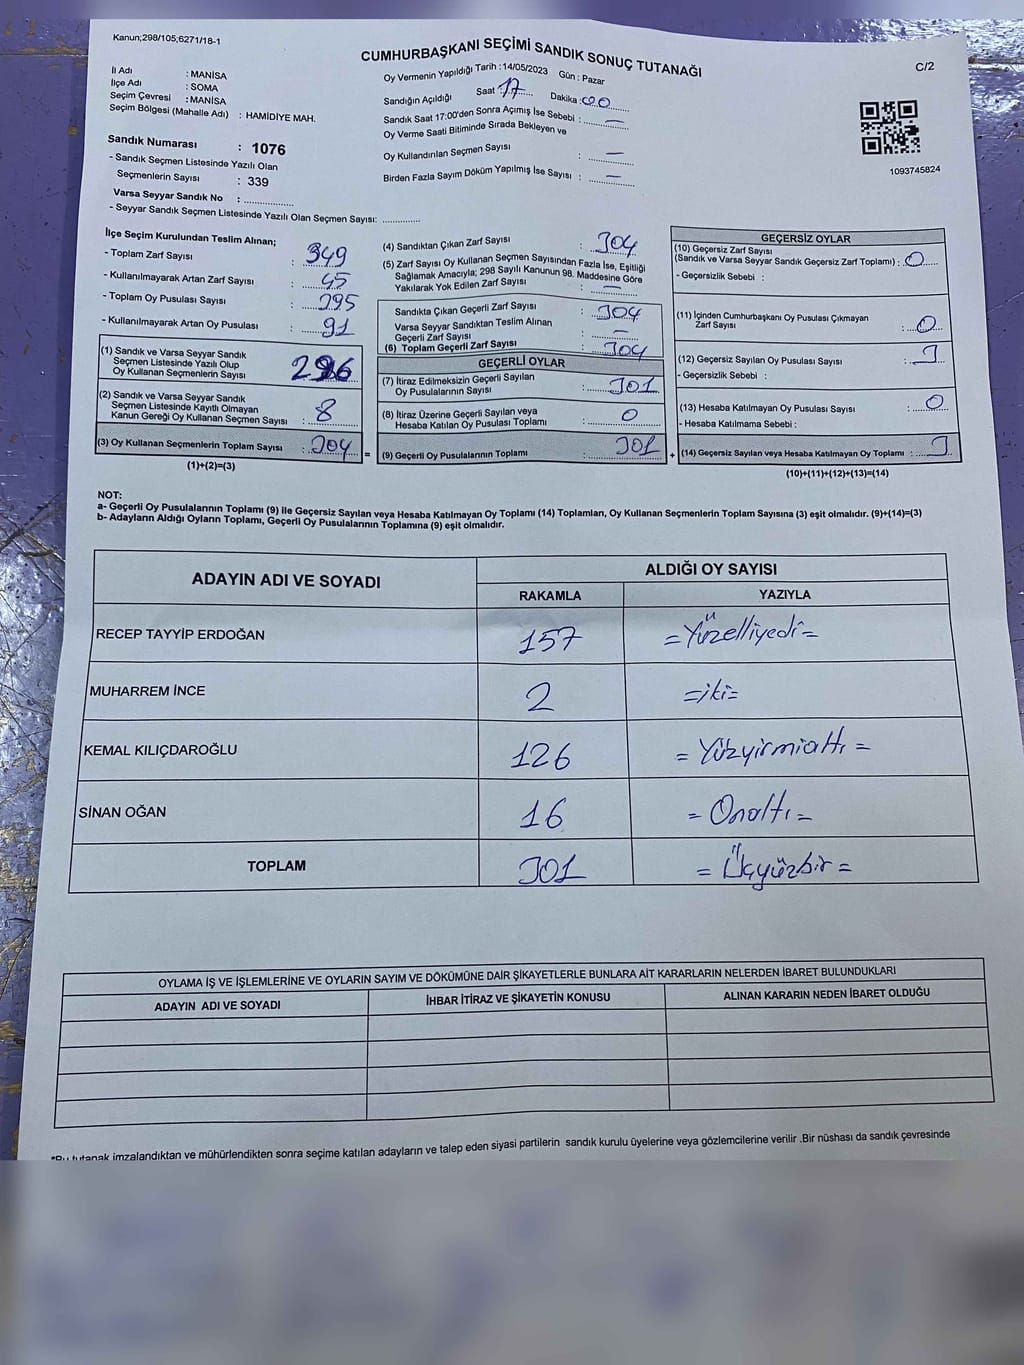 Kanun;298/105;6271/18-1
CUMHURBAŞKANI SEÇİMİ SANDIK SONUÇ TUTANAĞI
C/2
İl Adı : MANİSA
İlçe Adı : SOMA
Seçim Çevresi : MANİSA
Seçim Bölgesi (Mahalle Adı) : HAMİDİYE MAH.
Sandık Numarası : 1076
- Sandık Seçmen Listesinde Yazılı Olan
Seçmenlerin Sayısı : 339
Varsa Seyyar Sandık No :
- Seyyar Sandık Seçmen Listesinde Yazılı Olan Seçmen Sayısı:
Oy Vermenin Yapıldığı Tarih :14/05/2023 Gün : Pazar
Sandığın Açıldığı Saat 17 Dakika : 00
Sandık Saat 17:00'den Sonra Açımış İse Sebebi : —
Oy Verme Saati Bitiminde Sırada Bekleyen ve
Oy Kullandırılan Seçmen Sayısı : —
Birden Fazla Sayım Döküm Yapılmış İse Sayısı : —
1093745824
İlçe Seçim Kurulundan Teslim Alınan;
- Toplam Zarf Sayısı : 349
- Kullanılmayarak Artan Zarf Sayısı : 45
- Toplam Oy Pusulası Sayısı : 395
- Kullanılmayarak Artan Oy Pusulası : 91
(1) Sandık ve Varsa Seyyar Sandık
Seçmen Listesinde Yazılı Olup
Oy Kullanan Seçmenlerin Sayısı 296
(2) Sandık ve Varsa Seyyar Sandık
Seçmen Listesinde Kayıtlı Olmayan
Kanun Gereği Oy Kullanan Seçmen Sayısı : 8
(3) Oy Kullanan Seçmenlerin Toplam Sayısı : 304
(1)+(2)=(3)
(4) Sandıktan Çıkan Zarf Sayısı : 304
(5) Zarf Sayısı Oy Kullanan Seçmen Sayısından Fazla İse, Eşitliği
Sağlamak Amacıyla; 298 Sayılı Kanunun 98. Maddesine Göre
Yakılarak Yok Edilen Zarf Sayısı : —
Sandıkta Çıkan Geçerli Zarf Sayısı : 304
Varsa Seyyar Sandıktan Teslim Alınan
Geçerli Zarf Sayısı : —
(6) Toplam Geçerli Zarf Sayısı : 304
GEÇERLİ OYLAR
(7) İtiraz Edilmeksizin Geçerli Sayılan
Oy Pusulalarının Sayısı : 301
(8) İtiraz Üzerine Geçerli Sayılan veya
Hesaba Katılan Oy Pusulası Toplamı : 0
= (9) Geçerli Oy Pusulalarının Toplamı : 301
GEÇERSİZ OYLAR
(10) Geçersiz Zarf Sayısı
(Sandık ve Varsa Seyyar Sandık Geçersiz Zarf Toplamı) : 0
- Geçersizlik Sebebi :
(11) İçinden Cumhurbaşkanı Oy Pusulası Çıkmayan
Zarf Sayısı : 0
(12) Geçersiz Sayılan Oy Pusulası Sayısı : 3
- Geçersizlik Sebebi :
(13) Hesaba Katılmayan Oy Pusulası Sayısı : 0
- Hesaba Katılmama Sebebi :
+ (14) Geçersiz Sayılan veya Hesaba Katılmayan Oy Toplamı : 3
(10)+(11)+(12)+(13)=(14)
NOT:
a- Geçerli Oy Pusulalarının Toplamı (9) ile Geçersiz Sayılan veya Hesaba Katılmayan Oy Toplamı (14) Toplamları, Oy Kullanan Seçmenlerin Toplam Sayısına (3) eşit olmalıdır. (9)+(14)=(3)
b- Adayların Aldığı Oyların Toplamı, Geçerli Oy Pusulalarının Toplamına (9) eşit olmalıdır.
ADAYIN ADI VE SOYADI ALDIĞI OY SAYISI
RAKAMLA YAZIYLA
RECEP TAYYİP ERDOĞAN 157 =Yüzelliyedi=
MUHARREM İNCE 2 =iki=
KEMAL KILIÇDAROĞLU 126 =Yüzyirmialtı=
SİNAN OĞAN 16 =Onaltı=
TOPLAM 301 =Üçyüzbir=
OYLAMA İŞ VE İŞLEMLERİNE VE OYLARIN SAYIM VE DÖKÜMÜNE DAİR ŞİKAYETLERLE BUNLARA AİT KARARLARIN NELERDEN İBARET BULUNDUKLARI
ADAYIN ADI VE SOYADI İHBAR İTİRAZ VE ŞİKAYETİN KONUSU ALINAN KARARIN NEDEN İBARET OLDUĞU
*Bu tutanak imzalandıktan ve mühürlendikten sonra seçime katılan adayların ve talep eden siyasi partilerin sandık kurulu üyelerine veya gözlemcilerine verilir .Bir nüshası da sandık çevresinde